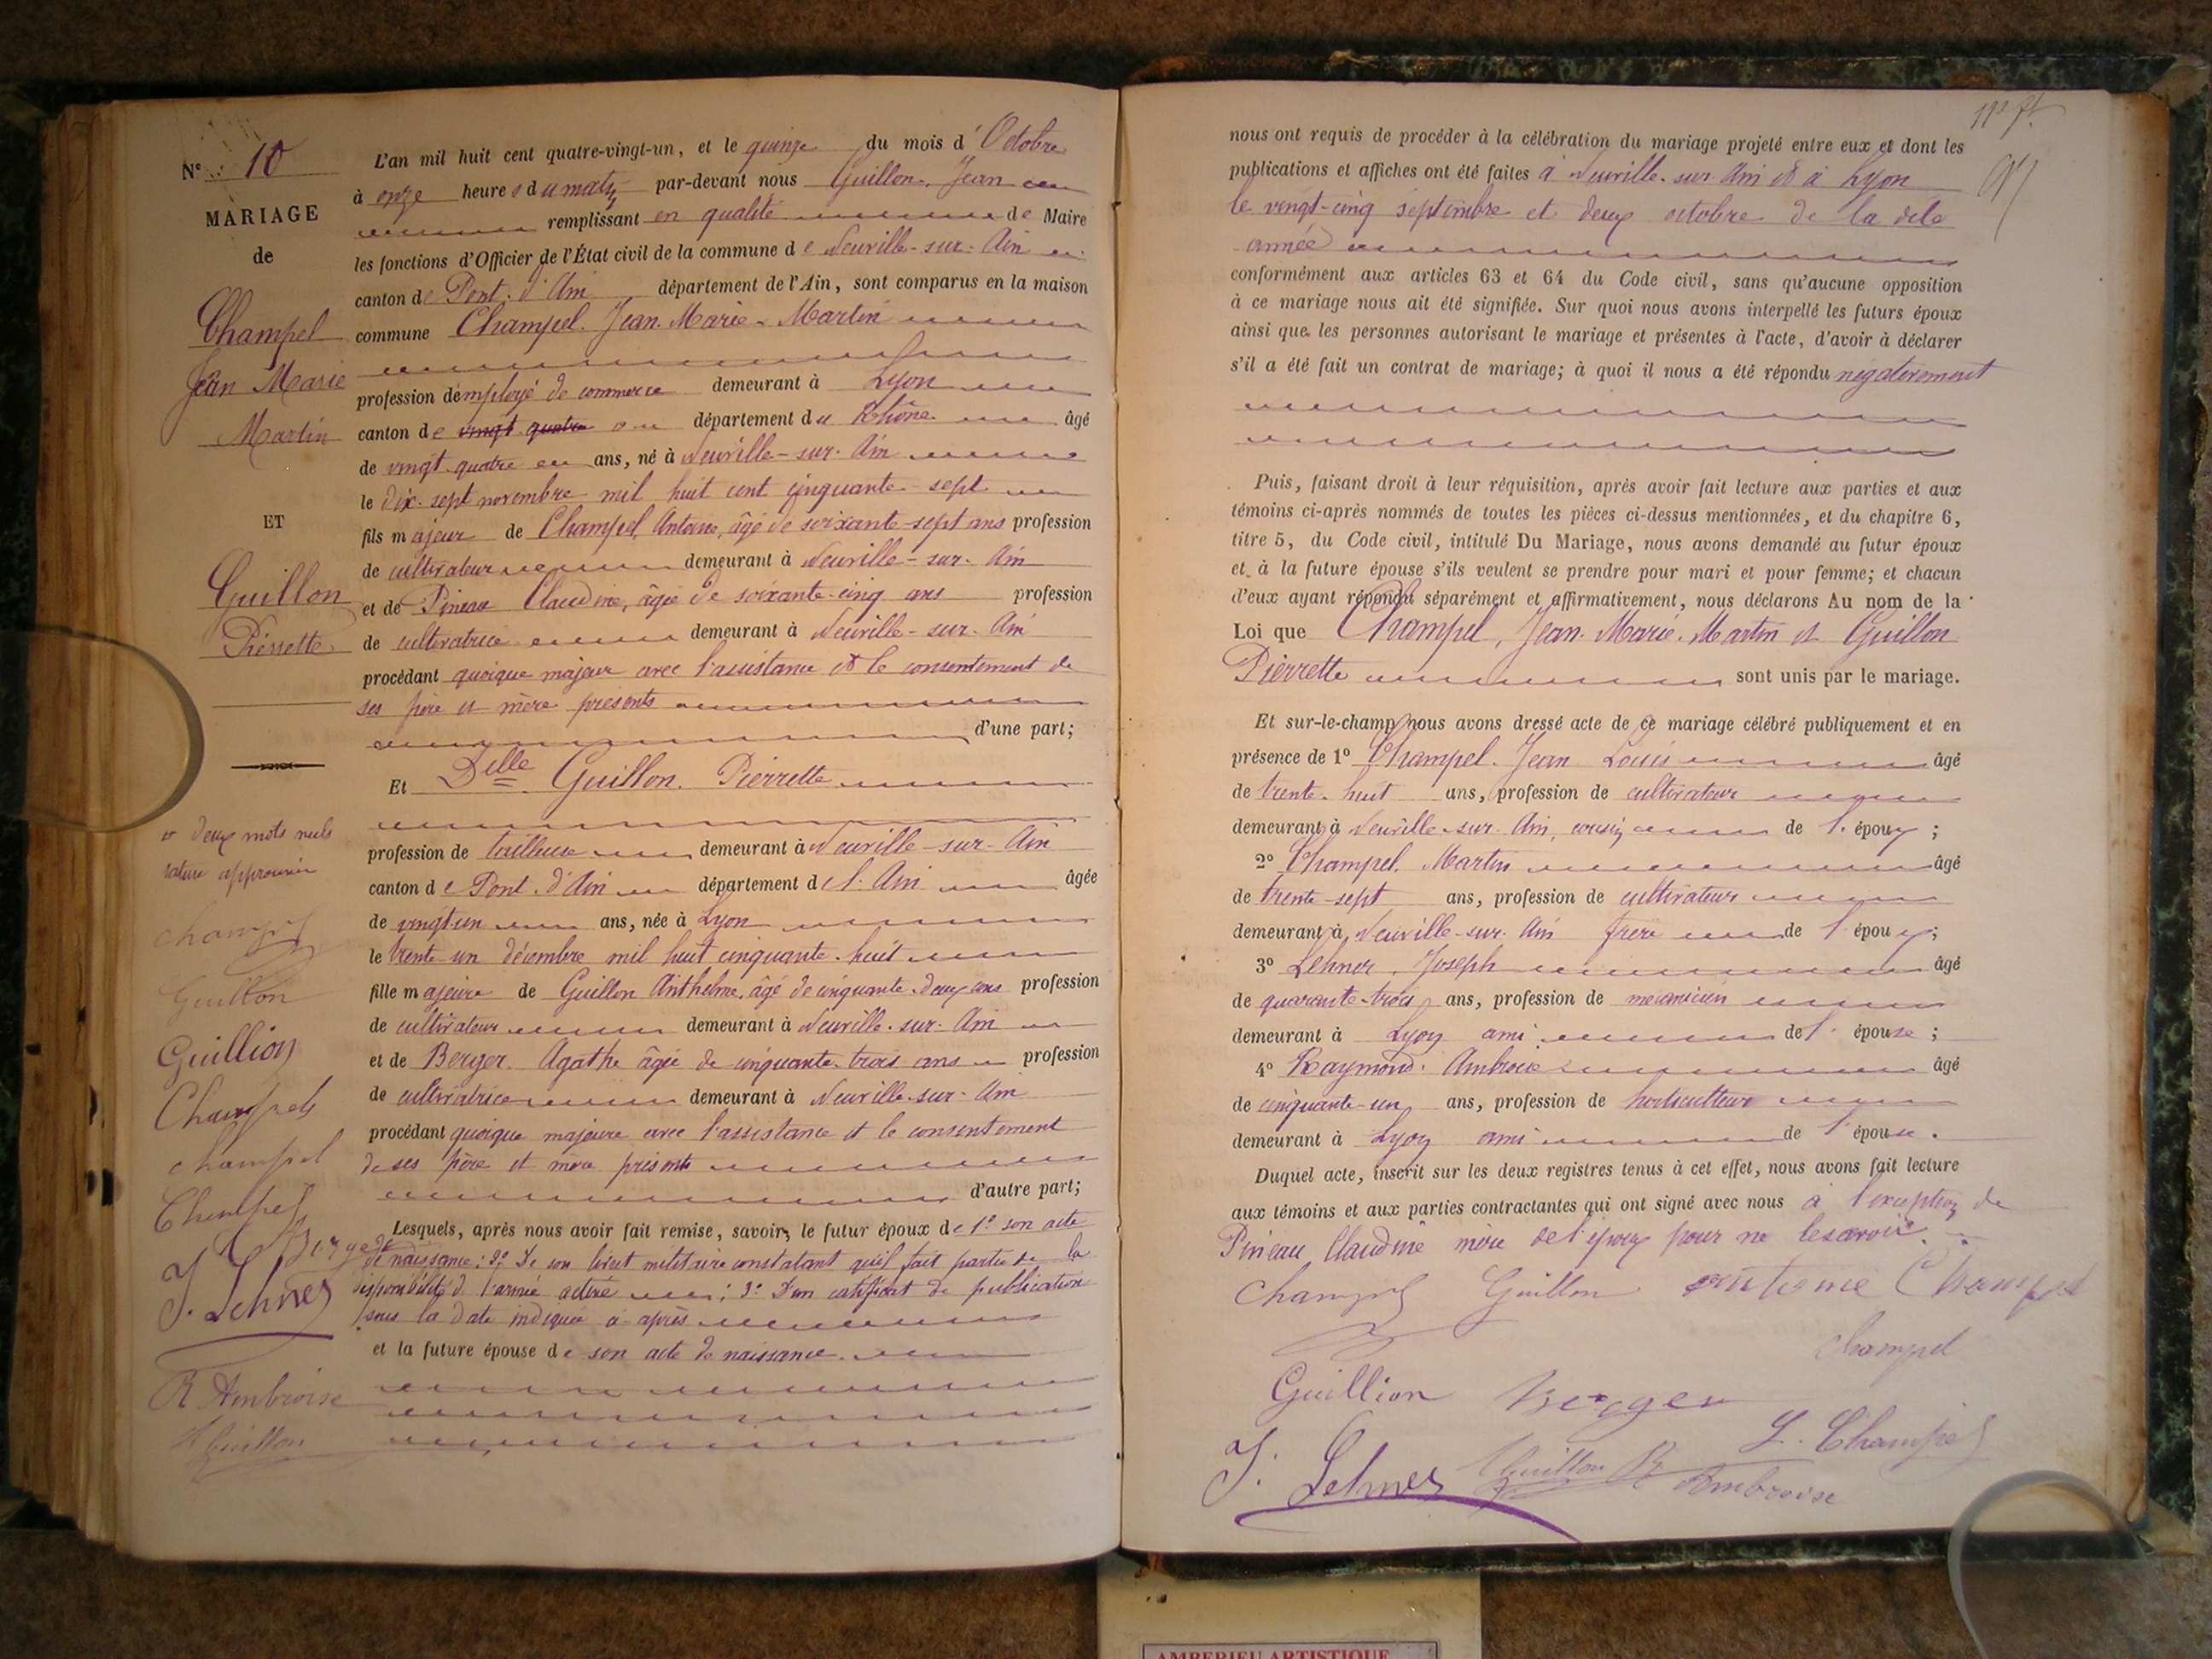 N° 10
MARIAGE
de
Champel
Jean Marie
Martin
ET
Guillon
Pierrette
deux mots nuls
rature approuvée
Champel
Guillon
Guillion
Champel
Champel
Champel
Berger
J. Lehner
R Ambroise
Guillon
L'an mil huit cent quatre-vingt-un, et le quinze du mois d'Octobre
à onze heures du matin par-devant nous Guillon, Jean
remplissant en qualité de Maire
les fonctions d'Officier de l'État civil de la commune de Neuville-sur-Ain
canton de Pont-d'Ain département de l'Ain, sont comparus en la maison
commune Champel Jean Marie Martin
profession d'employé de commerce demeurant à Lyon
canton de vingt quatre département du Rhône âgé
de vingt quatre ans, né à Neuville-sur-Ain
le dix-sept novembre mil huit cent cinquante-sept
fils majeur de Champel, Antoine, âgé de soixante-sept ans profession
de cultivateur demeurant à Neuville-sur-Ain
et de Pineau Claudine, âgée de soixante-cinq ans profession
de cultivatrice demeurant à Neuville-sur-Ain
procédant quoique majeur avec l'assistance et le consentement de
ses père et mère présents
d'une part;
Et Dlle Guillon Pierrette
profession de tailleuse demeurant à Neuville-sur-Ain
canton de Pont-d'Ain département de l'Ain âgée
de vingt-un ans, née à Lyon
le trente-un décembre mil huit cinquante-huit
fille majeure de Guillon Anthelme, âgé de cinquante-deux ans profession
de cultivateur demeurant à Neuville-sur-Ain
et de Berger Agathe âgée de cinquante-trois ans profession
de cultivatrice demeurant à Neuville-sur-Ain
procédant quoique majeure avec l'assistance et le consentement
de ses père et mère présents
d'autre part;
Lesquels, après nous avoir fait remise, savoir, le futur époux de 1° son acte
de naissance; 2° De son livret militaire constatant qu'il fait partie de la
disponibilité de l'armée active; 3° D'un certificat de publication
sous la date indiquée ci-après
et la future épouse de son acte de naissance
97
nous ont requis de procéder à la célébration du mariage projeté entre eux et dont les
publications et affiches ont été faites à Neuville-sur-Ain et à Lyon
le vingt-cinq septembre et deux octobre de la dite
année
conformément aux articles 63 et 64 du Code civil, sans qu'aucune opposition
à ce mariage nous ait été signifiée. Sur quoi nous avons interpellé les futurs époux
ainsi que les personnes autorisant le mariage et présentes à l'acte, d'avoir à déclarer
s'il a été fait un contrat de mariage; à quoi il nous a été répondu négativement
Puis, faisant droit à leur réquisition, après avoir fait lecture aux parties et aux
témoins ci-après nommés de toutes les pièces ci-dessus mentionnées, et du chapitre 6,
titre 5, du Code civil, intitulé Du Mariage, nous avons demandé au futur époux
et à la future épouse s'ils veulent se prendre pour mari et pour femme; et chacun
d'eux ayant répondu séparément et affirmativement, nous déclarons Au nom de la
Loi que Champel, Jean Marie Martin et Guillon
Pierrette sont unis par le mariage.
Et sur-le-champ nous avons dressé acte de ce mariage célébré publiquement et en
présence de 1° Champel Jean Louis âgé
de trente-huit ans, profession de cultivateur
demeurant à Neuville-sur-Ain, cousin de l'époux;
2° Champel Martin âgé
de trente-sept ans, profession de cultivateur
demeurant à Neuville-sur-Ain frère de l'époux;
3° Lehner, Joseph âgé
de quarante-trois ans, profession de mécanicien
demeurant à Lyon ami de l'épouse;
4° Raymond Ambroise âgé
de cinquante-un ans, profession de horticulteur
demeurant à Lyon ami de l'épouse.
Duquel acte, inscrit sur les deux registres tenus à cet effet, nous avons fait lecture
aux témoins et aux parties contractantes qui ont signé avec nous à l'exception de
Pineau Claudine mère de l'époux pour ne le savoir.
Champel Guillon antoine Champel
Champel
Guillion Berger
L. Champel
J. Lehner Guillon R Ambroise
AMBERIEU ARTISTIQUE